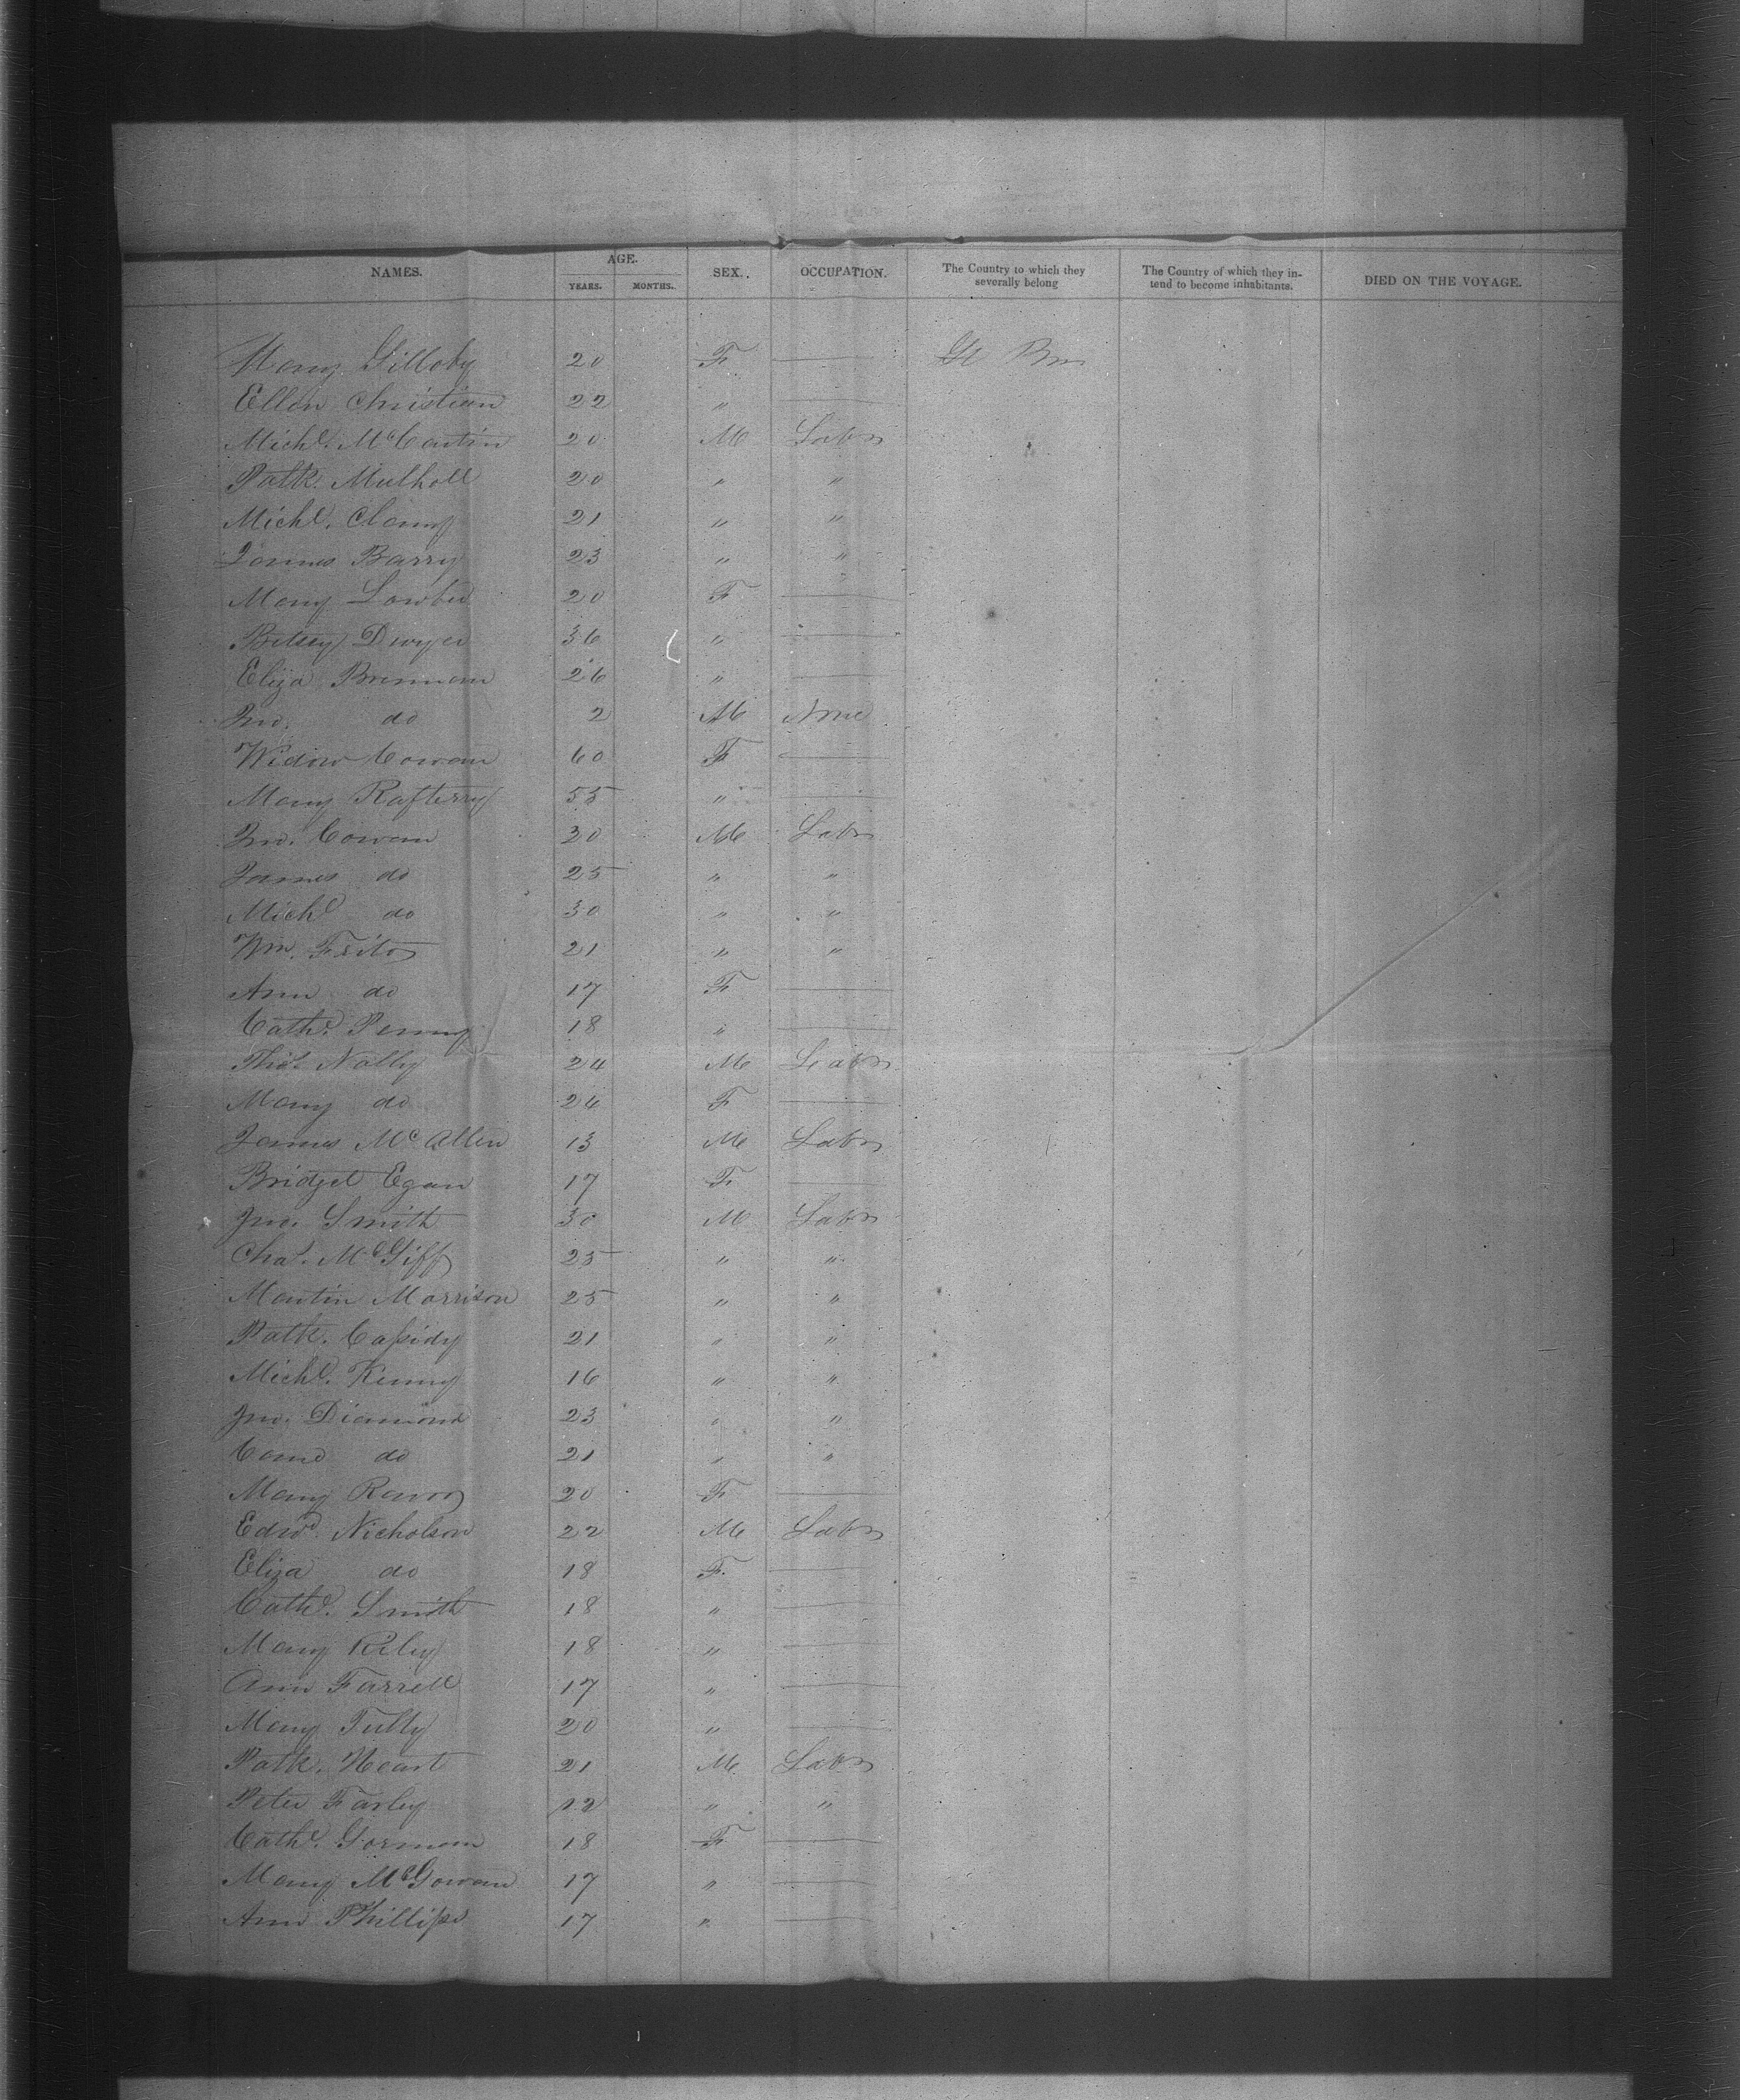 NAMES. AGE. YEARS. MONTHS. SEX. OCCUPATION. The Country to which they severally belong The Country of which they intend to become inhabitants. DIED ON THE VOYAGE.
Mary Gilloby 20 F — Gt Brn
Ellen Christian 22 " —
Michl. McCartin 20 M Labr
Patk. Mulholl 20 " "
Michl. Clancy 21 " "
James Barry 23 " "
Mary 20 F —
Betsey Dwyer 36 " —
Eliza Brennan 26 " —
Jno. do 2 M None
Widow Cowan 60 F —
Mary Rafterry 55 " —
Jno. Cowan 30 M Labr
James do 25 " "
Michl do 30 " "
Wm. 21 " "
Ann do 17 F —
Cathe. Penny 18 " —
Thos. Nally 24 M Labr
Mary do 24 F —
James McAllen 13 M Labr
Bridget Egan 17 F —
Jno. Smith 30 M Labr
Chas. McGiff 25 " "
Martin Morrison 25 " "
Patk. Cassidy 21 " "
Michl. Kenny 16 " "
Jno. Diamond 23 " "
do 21 " "
Mary 20 F —
Edwd. Nicholson 22 M Labr
Eliza do 18 F. —
Cathe. Smith 18 " —
Mary Riley 18 " —
Ann Farrell 17 " —
Mary Tully 20 " —
Patk. Heart 21 M Labr
Peter Farley 22 " "
Cathe. Gorman 18 F —
Mary McGowan 17 " —
Ann Phillips 17 " —